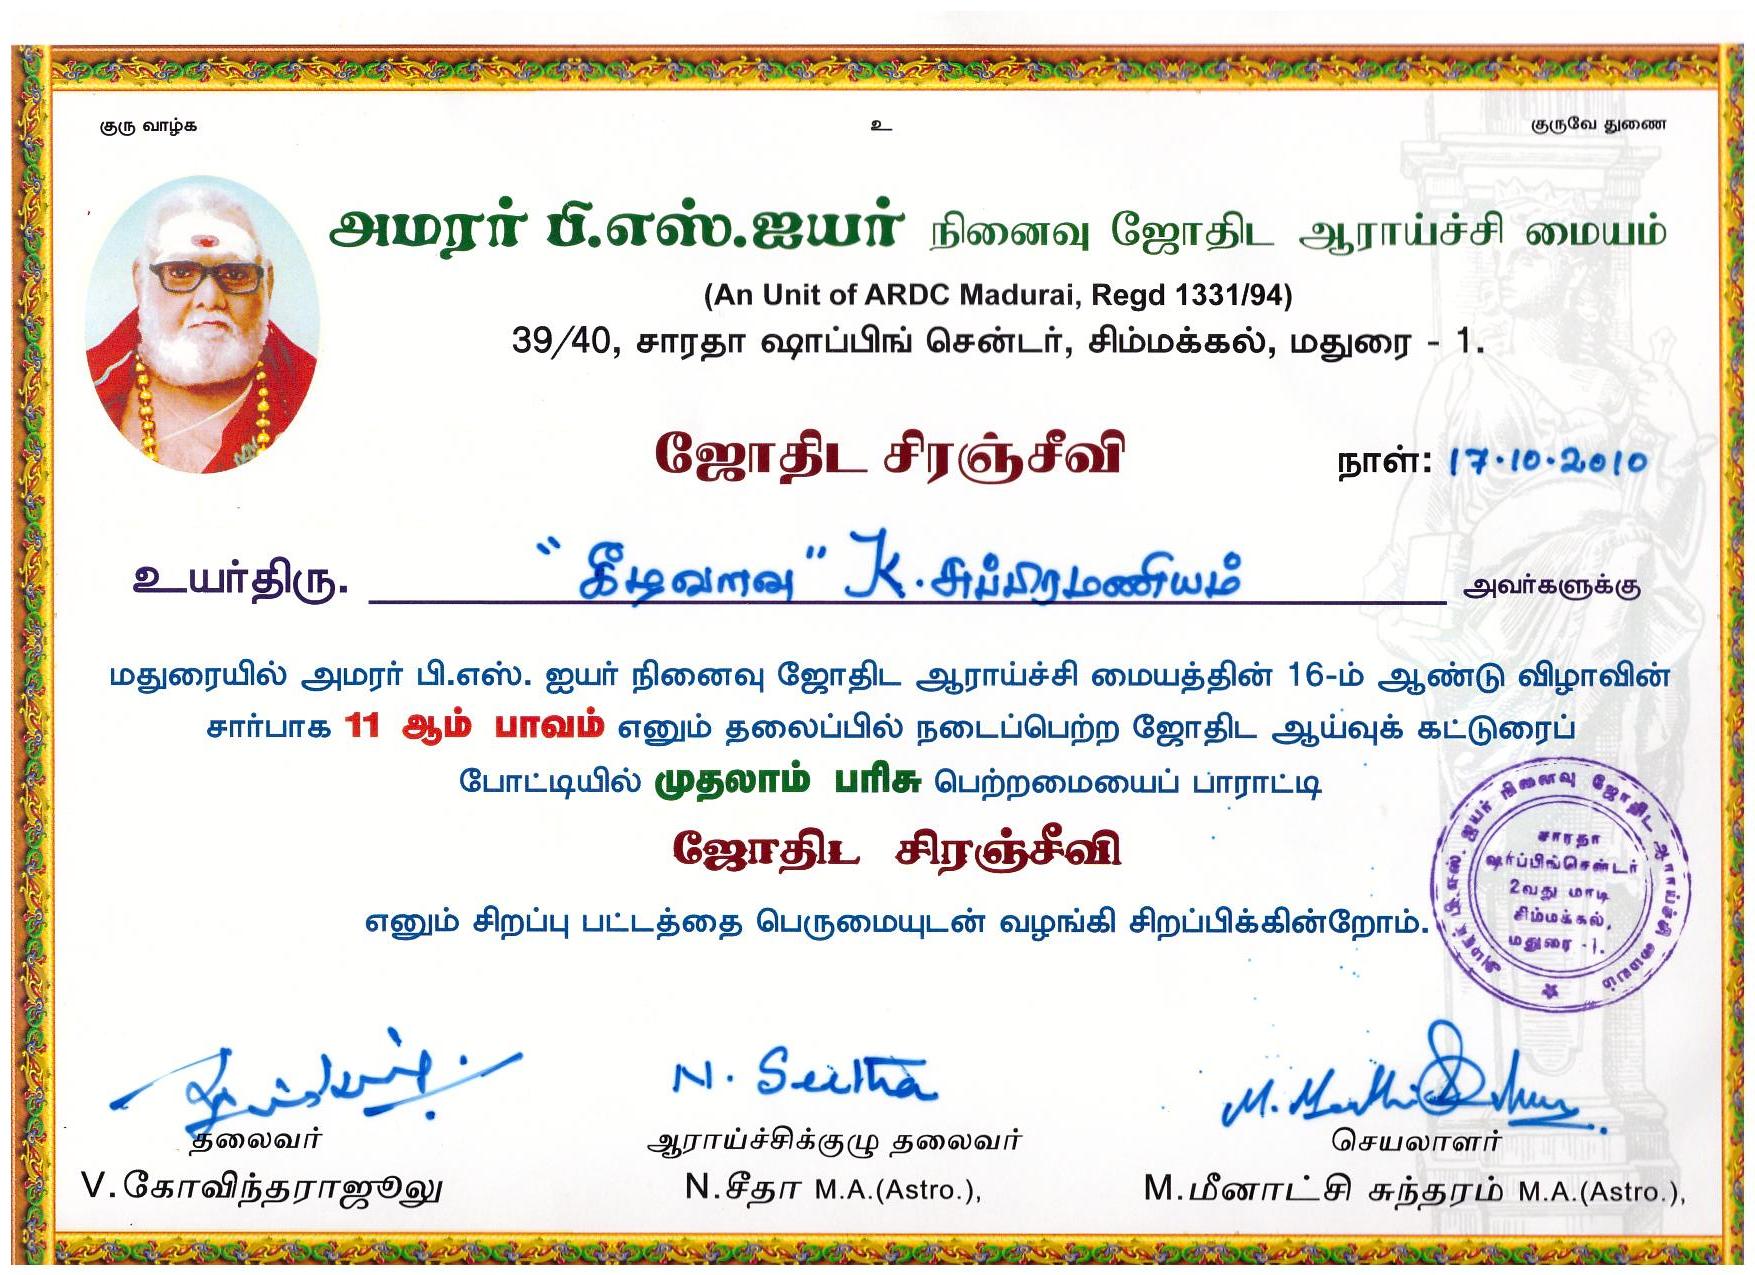 குரு வாழ்க
உ
குருவே துணை
அமரர் பி.எஸ்.ஐயர் நினைவு ஜோதிட ஆராய்ச்சி மையம்
(An Unit of ARDC Madurai, Regd 1331/94)
39/40, சாரதா ஷாப்பிங் சென்டர், சிம்மக்கல், மதுரை - 1.
ஜோதிட சிரஞ்சீவி
நாள்: 17.10.2010
உயர்திரு. "கீழவளவு" K. சுப்பிரமணியம் அவர்களுக்கு
மதுரையில் அமரர் பி.எஸ். ஐயர் நினைவு ஜோதிட ஆராய்ச்சி மையத்தின் 16-ம் ஆண்டு விழாவின்
சார்பாக 11 ஆம் பாவம் எனும் தலைப்பில் நடைப்பெற்ற ஜோதிட ஆய்வுக் கட்டுரைப்
போட்டியில் முதலாம் பரிசு பெற்றமையைப் பாராட்டி
ஜோதிட சிரஞ்சீவி
எனும் சிறப்பு பட்டத்தை பெருமையுடன் வழங்கி சிறப்பிக்கின்றோம்.
அமரர் பி.எஸ். ஐயர் நினைவு ஜோதிட ஆராய்ச்சி மையம்
சாரதா
ஷாப்பிங்சென்டர்
2வது மாடி
சிம்மக்கல்,
மதுரை - 1.
N. Seetha
தலைவர்
ஆராய்ச்சிக்குழு தலைவர்
செயலாளர்
V.கோவிந்தராஜூலு
N.சீதா M.A.(Astro.),
M.மீனாட்சி சுந்தரம் M.A.(Astro.),